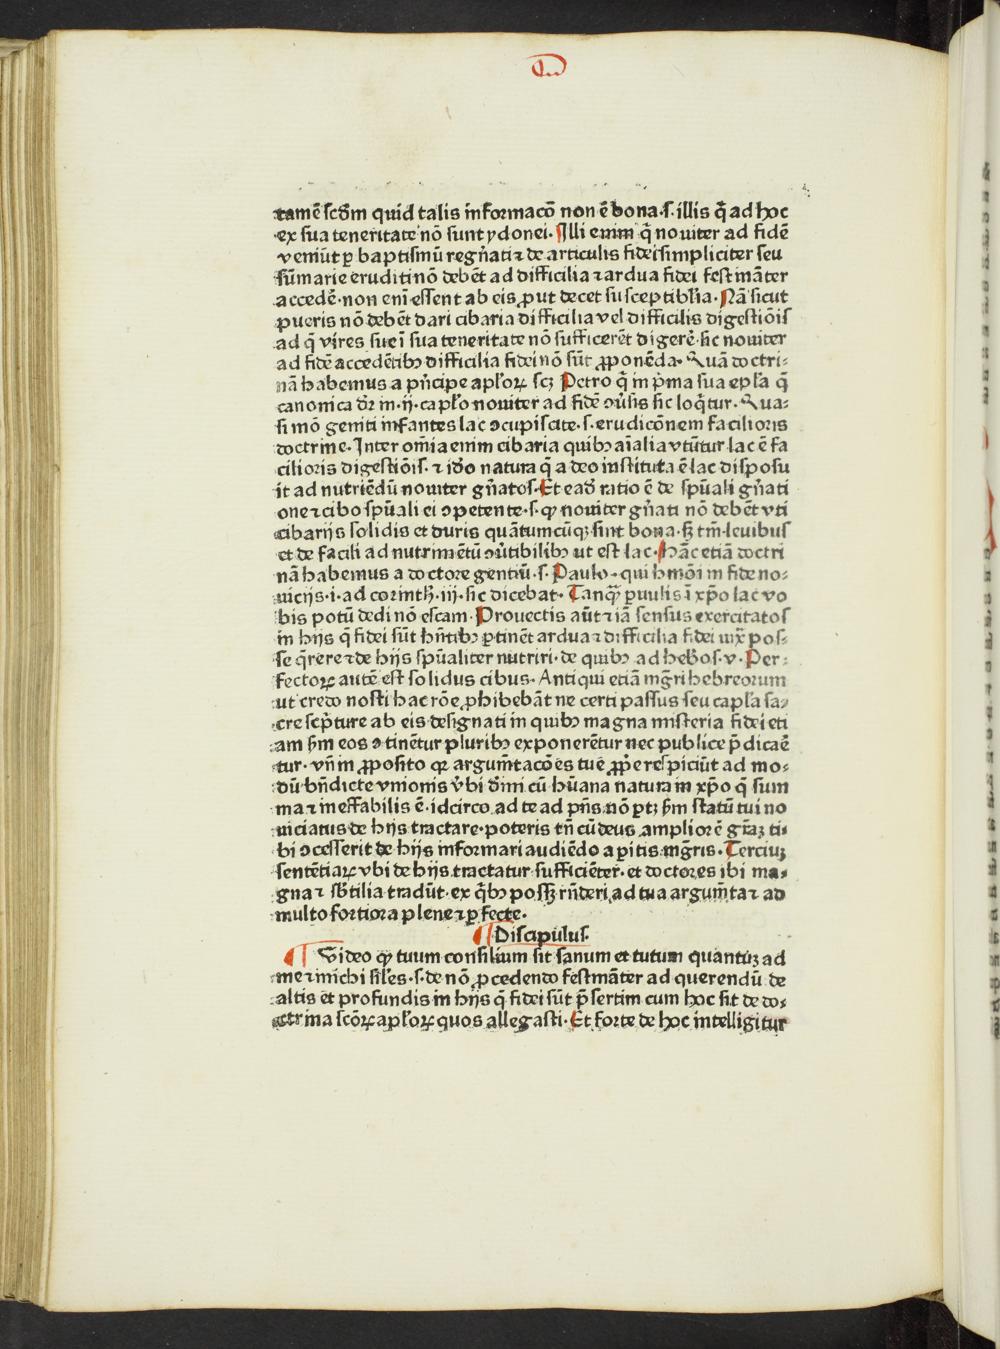 tamē ſcdm quid talis informacō non ē bona·ſ·illis q̄ ad hoc
ex ſua teneritate nō ſunt ydonei· Illi enim q̄ nouiter ad fidē
veniūt ꝑ baptiſmū regn̄ati ⁊ de articulis fidei ſimpliciter ſeu
ſūmarie eruditi nō debēt ad difficilia ⁊ ardua fidei feſtināter
accedē·non eni eſſent ab eis ꝓut decet ſuſceptibl̓ia· Nā ſicut
pueris nō debēt dari cibaria difficilia vel difficilis digeſtiōiſ
ad q̄ vires ſue ī ſua teneritate nō ſufficerēt digerē·ſic nouiter
ad fidē accedētibꝫ difficilia fidei nō ſūt ꝓponēda· Quā doctri⸗
nā habemus a pn̄cipe apl̓oꝝ ſcꝫ Petro q̄ in pm̄a ſua epl̓a q̄
canonica dr̄ in·ij·capl̓o nouiter ad fidē ꝯu̓ſis ſic loq̄tur· Qua⸗
ſi mō geniti infantes lac ꝯcupiſcite·ſ·erudicōnem facilioris
doctrine· Inter om̄ia enim cibaria quibꝫ aīalia vtūtur lac ē fa
cilioris digeſtiōiſ· ⁊ id̓o natura q̄ a deo inſtituta ē lac diſpoſu
it ad nutriēdū nouiter gn̄atoſ· Et ead̓ ratio ē de ſpūali gn̄ati
one ⁊ cibo ſpūali ei ꝯpetente·ſ·ꝙ nouiter gn̄ati nō debēt vti
cibarijs ſolidis et duris quātumcūqꝫ ſint bona·ſꝫ tm̄ leuibus
et de facili ad nutrimētū ꝯu̓tibilibꝫ ut eſt lac· Hāc etiā doctri
nā habemus a doctore gentiū·ſ· Paulo· qui hmōi in fide no⸗
uicijs·i·ad corinth̓·iij·ſic dicebat· Tanqꝫ̄ ꝑuulis ī xp̄o lac vo
bis potū dedi nō eſcam· Prouectis aūt ⁊ iā ſenſus exercitatoſ
in hijs q̄ fidei ſūt hn̄tibꝫ ꝑtinēt ardua ⁊ difficilia fidei iux̄ poſ⸗
ſe q̄rere ⁊ de hijs ſpūaliter nutriri·de quibꝫ ad heb̓os·v· Per⸗
fectoꝝ autē eſt ſolidus cibus· Antiqui etiā mḡri hebreorum
ut credo noſti hac rōe ꝓhibebāt ne certi paſſus ſeu capl̓a ſa⸗
cre ſcp̄ture ab eis deſignati in quibꝫ magna miſteria fidei eti
am ſm̄ eos ꝯtinētur pluribꝫ exponerētur nec publice p̄dicaē
tur· vn̄ in ꝓpoſito qꝛ argum̄tacōes tue ꝓp̓e reſpiciūt ad mo⸗
dū bn̄dicte vnionis v̓bi dīni cū hūana natura in xp̄o q̄ ſum
ma ⁊ ineffabilis ē·idcirco ad te ad pn̄s nō ꝑtꝫ ſm̄ ſtatū tui no
uiciatus de hijs tractare·poteris tn̄ cū deus ampliorē gr̄aꝫ ti⸗
bi ꝯceſſerit de hijs informari audiēdo a ꝑitis mḡris· Terciuꝫ
ſentētiaꝝ vbi de hijs tractatur ſufficiēter·et doctores ibi ma⸗
gna ⁊ ſb̓tilia tradūt·ex q̄bꝫ poſſꝫ rn̄deri ad tua argum̄ta ⁊ ad
multo fortiora plene ⁊ ꝑfecte·
Diſcipulus·
Video ꝙ tuum conſilium ſit ſanum et tutum quantūꝫ ad
me ⁊ michi ſil̓es·ſ·de nō ꝓcedendo feſtināter ad querendū de
altis et profundis in hijs q̄ fidei ſūt p̄ſertim cum hoc ſit de do⸗
ctrina ſcōꝝ apl̓oꝝ quos allegaſti· Et forte de hoc intelligitur